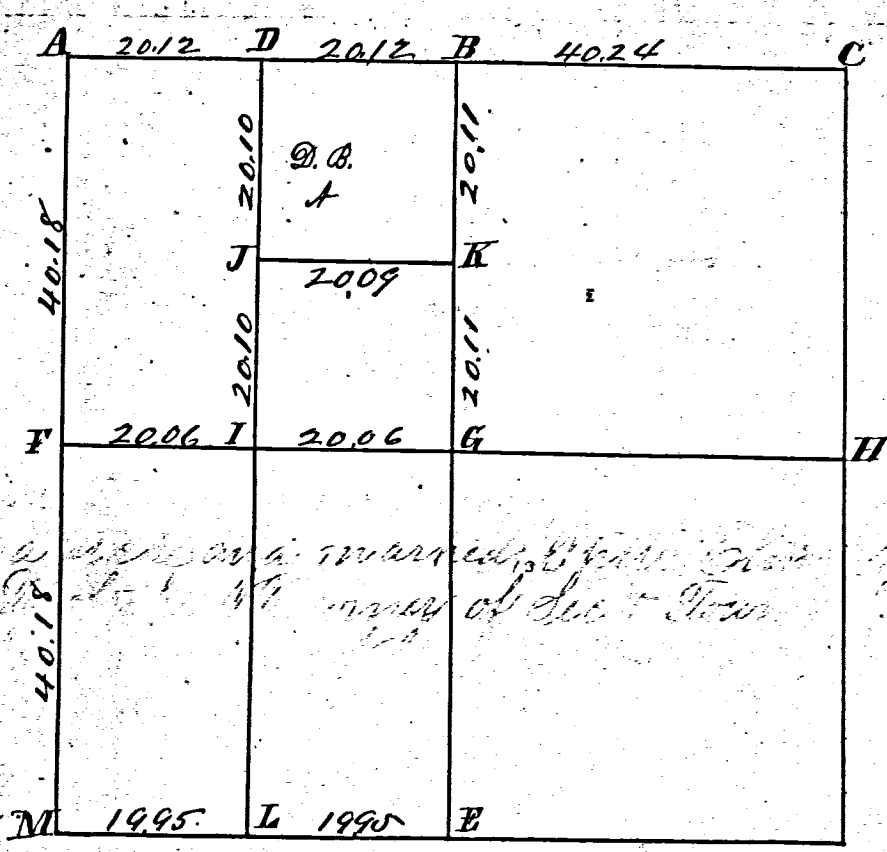 A 20.12 D 20.12 B 40.24 C
20.10
20.11
D. B.
A
40.18
J K
20.09
20.10
20.11
F 20.06 I 20.06 G H
a and married
of Sec
40.18
M 19.95 L 1995 E